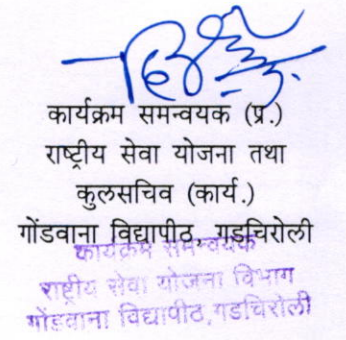 कार्यक्रम समन्वयक (प्र.)
राष्ट्रीय सेवा योजना तथा
कुलसचिव (कार्य.)
गोंडवाना विद्यापीठ, गडचिरोली
कार्यक्रम समन्वयक
राष्ट्रीय सेवा योजना विभाग
गोंडवाना विद्यापीठ,गडचिरोली